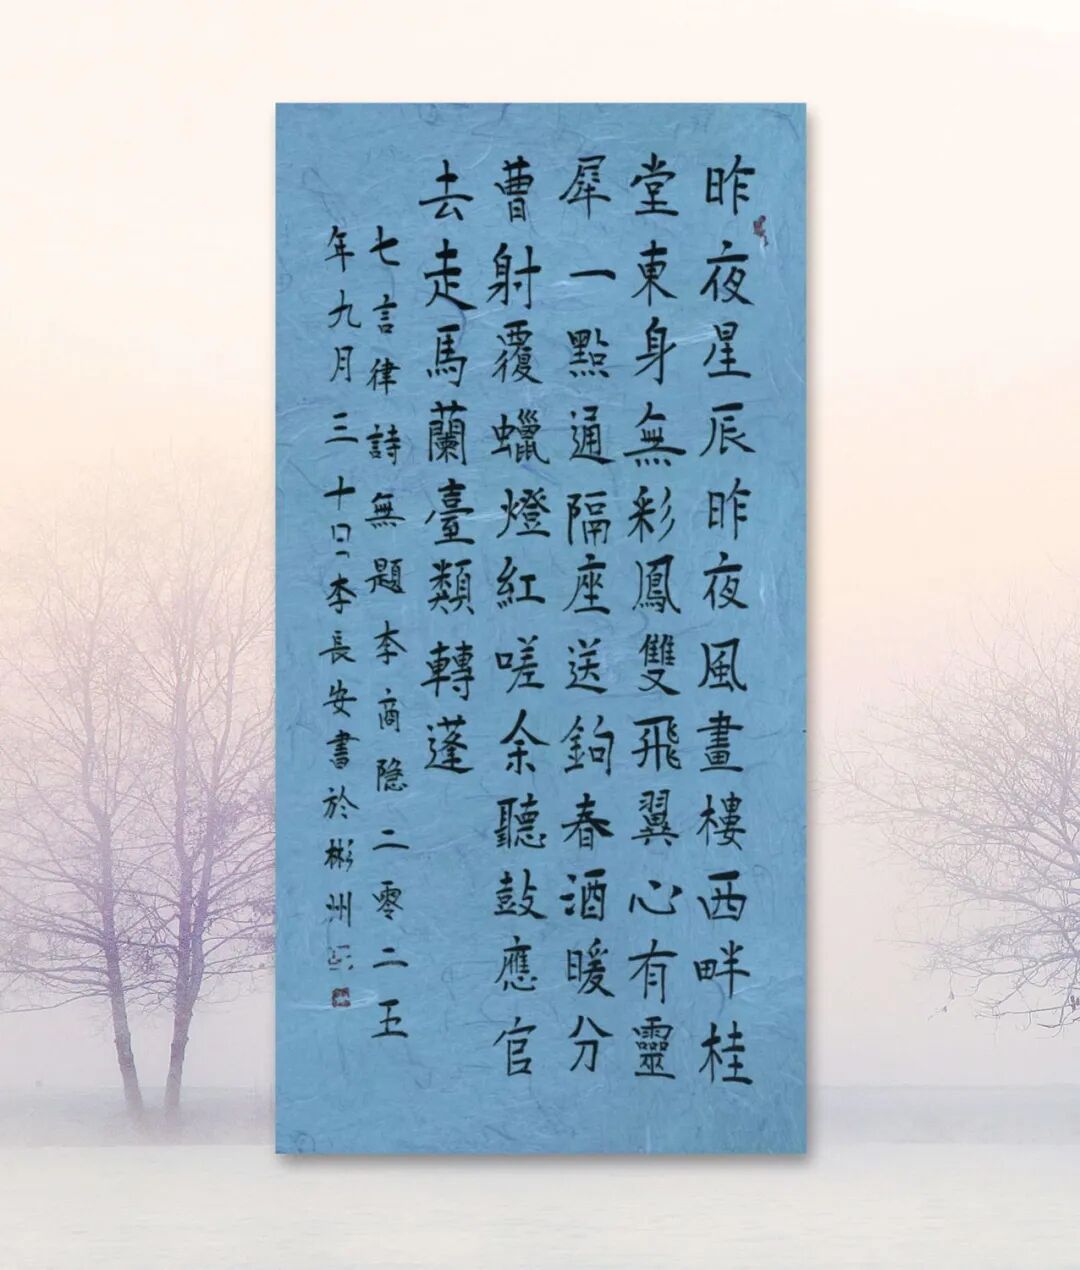 昨夜星辰昨夜風畫樓西畔桂
堂東身無彩鳳雙飛翼心有靈
犀一點通隔座送鉤春酒暖分
曹射覆蠟燈紅嗟余聽鼓應官
去走馬蘭臺類轉蓬
七言律詩無題李商隐二零二五
年九月三十日李長安書於彬州